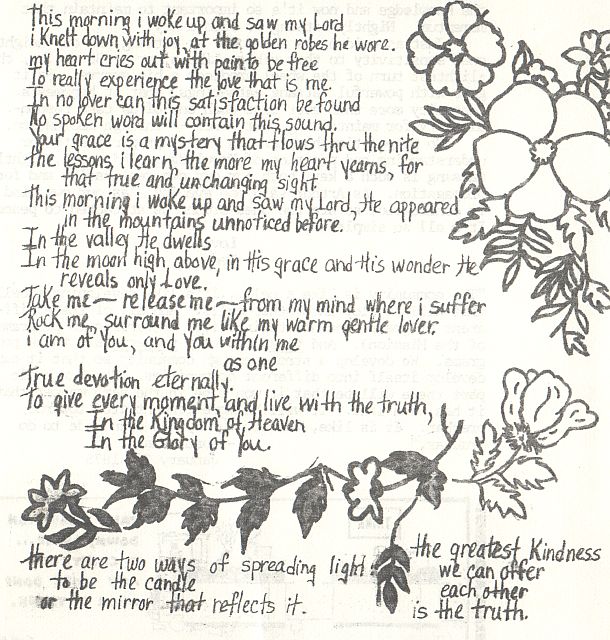 This morning i woke up and saw my Lord
i knelt down with joy, at the golden robes he wore.
my heart cries out with pain to be free
To really experience the love that is me.
In no lover can this satisfaction be found
No spoken word will contain this sound.
Your grace is a mystery that flows thru the nite
the lessons, i learn, the more my heart yearns, for
that true and unchanging sight
This morning i woke up and saw my Lord, He appeared
in the mountains unnoticed before.
In the valley He dwells
In the moon high above, in His grace and His wonder He
reveals only Love.
Take me — release me — from my mind where i suffer
Rock me, surround me like my warm gentle lover.
i am of You, and You within me
as one
True devotion eternally.
To give every moment, and live with the truth,
In the Kingdom of Heaven
In the Glory of You.
there are two ways of spreading light:
to be the candle
or the mirror that reflects it.
the greatest Kindness
we can offer
each other
is the truth.